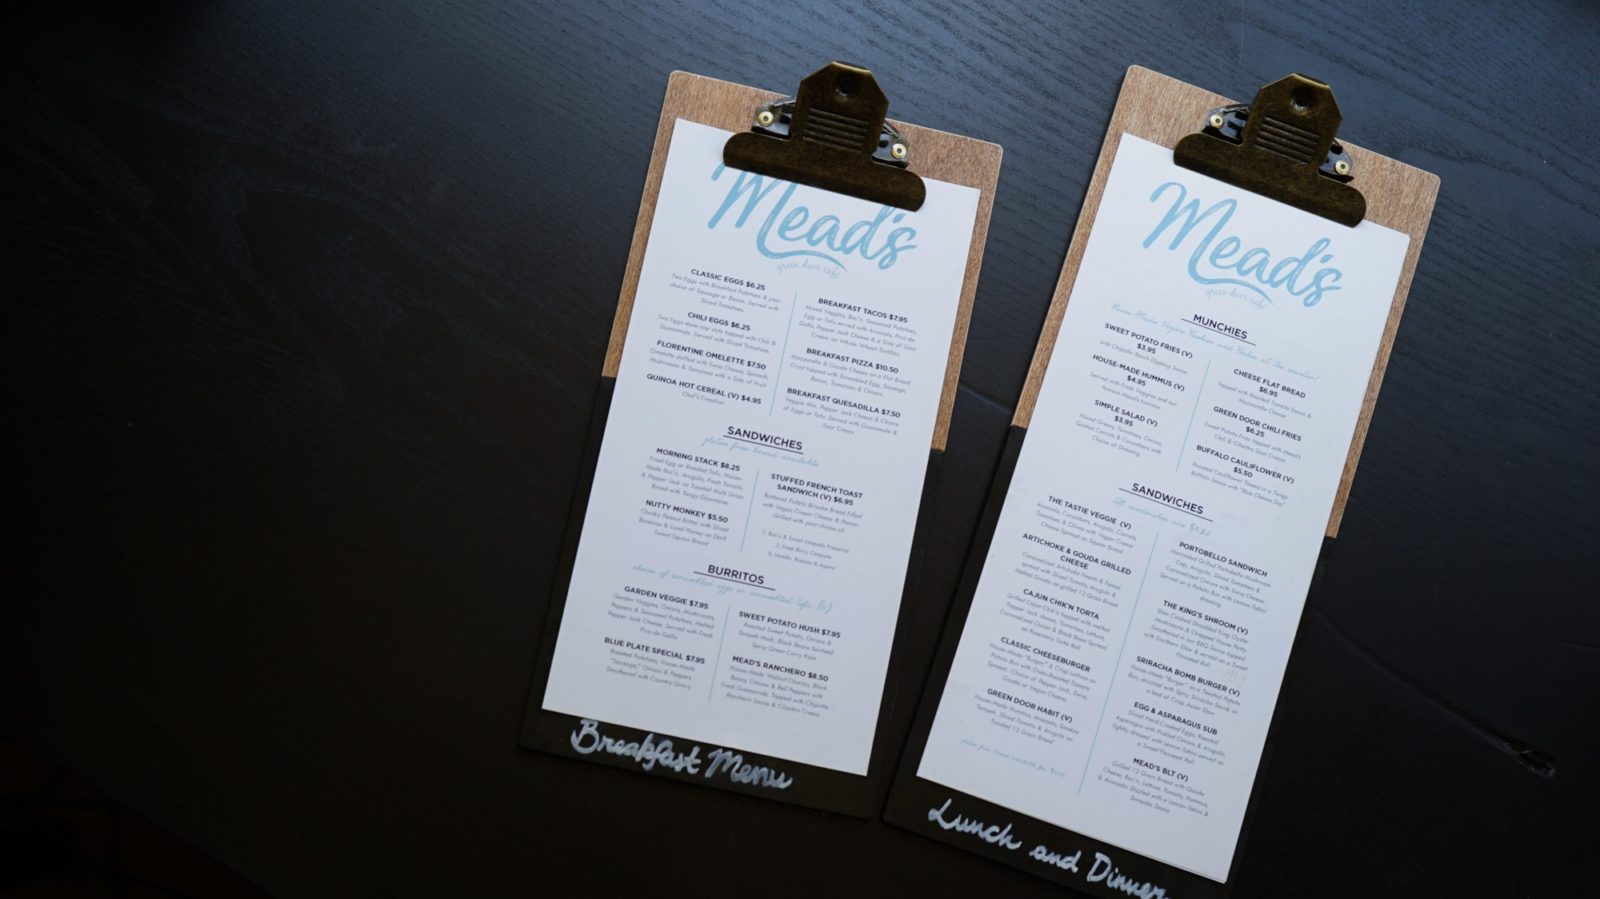 Mead's
green door cafe
CLASSIC EGGS $6.25
Two Eggs with Breakfast Potatoes & your
choice of Sausage or Bacon. Served with
Sliced Tomatoes.
CHILI EGGS $6.25
Two Eggs done any style topped with Chili &
Guacamole. Served with Sliced Tomatoes.
FLORENTINE OMELETTE $7.50
Omelette stuffed with Swiss Cheese, Spinach,
Mushrooms & Tomatoes with a Side of Fruit
QUINOA HOT CEREAL (V) $4.95
Chef's Creation
BREAKFAST TACOS $7.95
Mixed Veggies, Bac'n, Seasoned Potatoes,
Egg or Tofu served with Avocado, Pico de
Gallo, Pepper Jack Cheese & a Side of Sour
Cream on Whole Wheat Tortillas.
BREAKFAST PIZZA $10.50
Mozzarella & Gouda Cheese on a Flat Bread
Crust topped with Scrambled Egg, Sausage,
Bacon, Tomatoes & Onions.
BREAKFAST QUESADILLA $7.50
Veggie Mix, Pepper Jack Cheese & Choice
of Eggs or Tofu. Served with Guacamole &
Sour Cream
SANDWICHES
gluten free bread available
MORNING STACK $8.25
Fried Egg or Roasted Tofu, House-
Made Bac'n, Arugula, Fresh Tomato
& Pepper Jack on Toasted Multi Grain
Bread with Tangy Dijonnaise.
NUTTY MONKEY $5.50
Chunky Peanut Butter with Sliced
Bananas & Local Honey on Dark
Sweet Squaw Bread
STUFFED FRENCH TOAST
SANDWICH (V) $6.95
Battered Potato Brioche Bread Filled
with Vegan Cream Cheese & Pecans.
Grilled with your choice of:
1. Bac'n & Sweet Jalapeño Preserves
2. Fresh Berry Compote
3. Nutella, Banana &
BURRITOS
choice of scrambled eggs or scrambled tofu (v)
GARDEN VEGGIE $7.95
Garden Veggies, Onions, Mushrooms,
Peppers & Seasoned Potatoes, Melted
Pepper Jack Cheese. Served with Fresh
Pico de Gallo
BLUE PLATE SPECIAL $7.95
Roasted Potatoes, House-Made
"Sausage," Onions & Peppers
Smothered with Country Gravy
SWEET POTATO HUSH $7.95
Roasted Sweet Potato, Onions &
Tempeh Hash, Black Beans Sauteed
Spicy Green Curry Kale
MEAD'S RANCHERO $8.50
House-Made Walnut Chorizo, Black
Beans, Onions & Bell Peppers with
Fresh Guacamole. Topped with Chipotle
Ranchero Sauce & Cilantro Cream
Breakfast Menu
Mead's
green door cafe
MUNCHIES
House-Made Vegan Cookies and Cakes at the counter!
SWEET POTATO FRIES (V)
$3.95
with Chipotle Ranch Dipping Sauce
HOUSE-MADE HUMMUS (V)
$4.95
Served with Fresh Veggies and our
SIMPLE SALAD (V)
$3.95
Mixed Greens, Tomatoes, Onions,
Grated Carrots & Cucumbers with
Choice of Dressing
CHEESE FLAT BREAD
$6.95
Topped with Roasted Tomato Sauce &
Mozzarella Cheese
GREEN DOOR CHILI FRIES
$6.25
Sweet Potato Fries topped with Mead's
Chili & Cilantro Sour Cream
BUFFALO CAULIFLOWER (V)
$5.50
Roasted Cauliflower Tossed in a Tangy
Buffalo Sauce with "Blue Cheese Dip"
SANDWICHES
All sandwiches are
THE TASTIE VEGGIE (V)
Avocado, Cucumbers, Arugula, Carrots,
Tomatoes & Olives with Vegan Cream
Cheese Spread on Squaw Bread
ARTICHOKE & GOUDA GRILLED
CHEESE
Caramelized Artichoke Hearts & Fennel
spread with Sliced Tomato, Arugula &
Melted Gouda on grilled 12 Grain Bread
CAJUN CHIK'N TORTA
Grilled Cajun Chik'n topped with melted
Pepper Jack cheese, Tomatoes, Lettuce,
Caramelized Onions & Black Bean Spread
on Rosemary Torta Roll
CLASSIC CHEESEBURGER
House-Made "Burger" & Crisp Lettuce on
Potato Bun with Oven-Roasted Tomato
Spread. Choice of Pepper Jack, Swiss,
Gouda or Vegan Cheese.
GREEN DOOR HABIT (V)
House-Made Hummus, Avocado, Smokey
Tempeh, Sliced Tomato & Arugula on
Toasted 12 Grain Bread
gluten free bread available for
PORTOBELLO SANDWICH
Marinated Grilled Portobello Mushroom
Cap, Arugula, Sliced Tomatoes &
Caramelized Onions with Swiss Cheese.
Served on a Potato Bun with Lemon-Tahini
dressing
THE KING'S SHROOM (V)
Slow Cooked Shredded King Oyster
Mushrooms & Chopped House Patty
Smothered in our BBQ Sauce topped
with Southern Slaw & served on a Sweet
Flaxseed Roll
SRIRACHA BOMB BURGER (V)
House-Made "Burger" on a Toasted Potato
Bun, drizzled with Spicy Sriracha Sauce on
a bed of Crisp Asian Slaw
EGG & ASPARAGUS SUB
Sliced Hard-Cooked Eggs, Roasted
Asparagus with Pickled Onions & Arugula,
lightly dressed with Lemon-Tahini served on
a Sweet Flaxseed Roll
MEAD'S BLT (V)
Grilled 12 Grain Bread with Gouda
Cheese, Bac'n, Lettuce, Tomato, Hummus,
& Avocado, Drizzled with a Lemon-Tahini &
Sriracha Sauce.
Lunch and Dinner